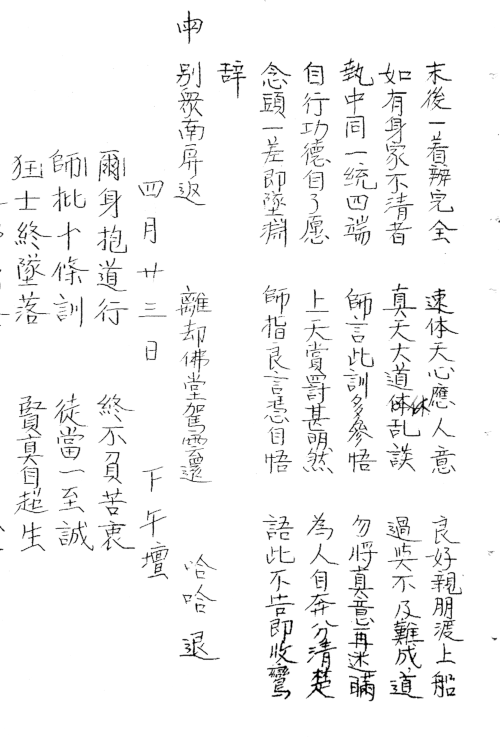 末後一着辨完全 速体天心應人意 良好親朋渡上船
如有身家不清者 真天大道休乱談 過與不及難成道
執中同一統四端 師言此訓多參悟 勿將真意再迷瞞
自行功德自了愿 上天賞罰甚明然 為人自奔分清楚
念頭一差即墜淵 師指良言憑自悟 語此不告即收鸞
辞
申 别眾南屏返 離却佛堂駕雲還 哈哈 退
四月廿三日 下午壇
爾身抱道行 終不負苦衷
師批十條訓 徒當一至誠
狂士終墜落 賢真自超生